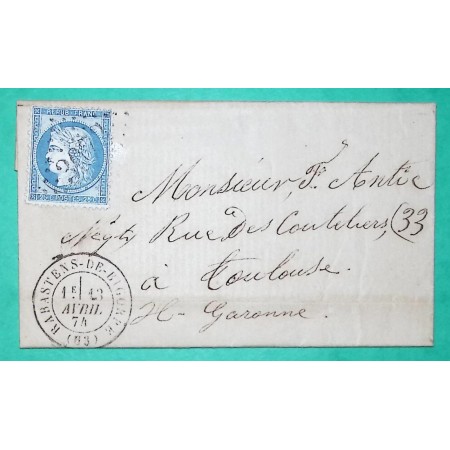 REPUB·FRANC
POSTES
Monsieur F. Antie
Négt Rue des Couteliers, (33
à Toulouse.
Hte Garonne.
RABASTENS-DE-BIGORRE
1E 13
AVRIL
74
(63)